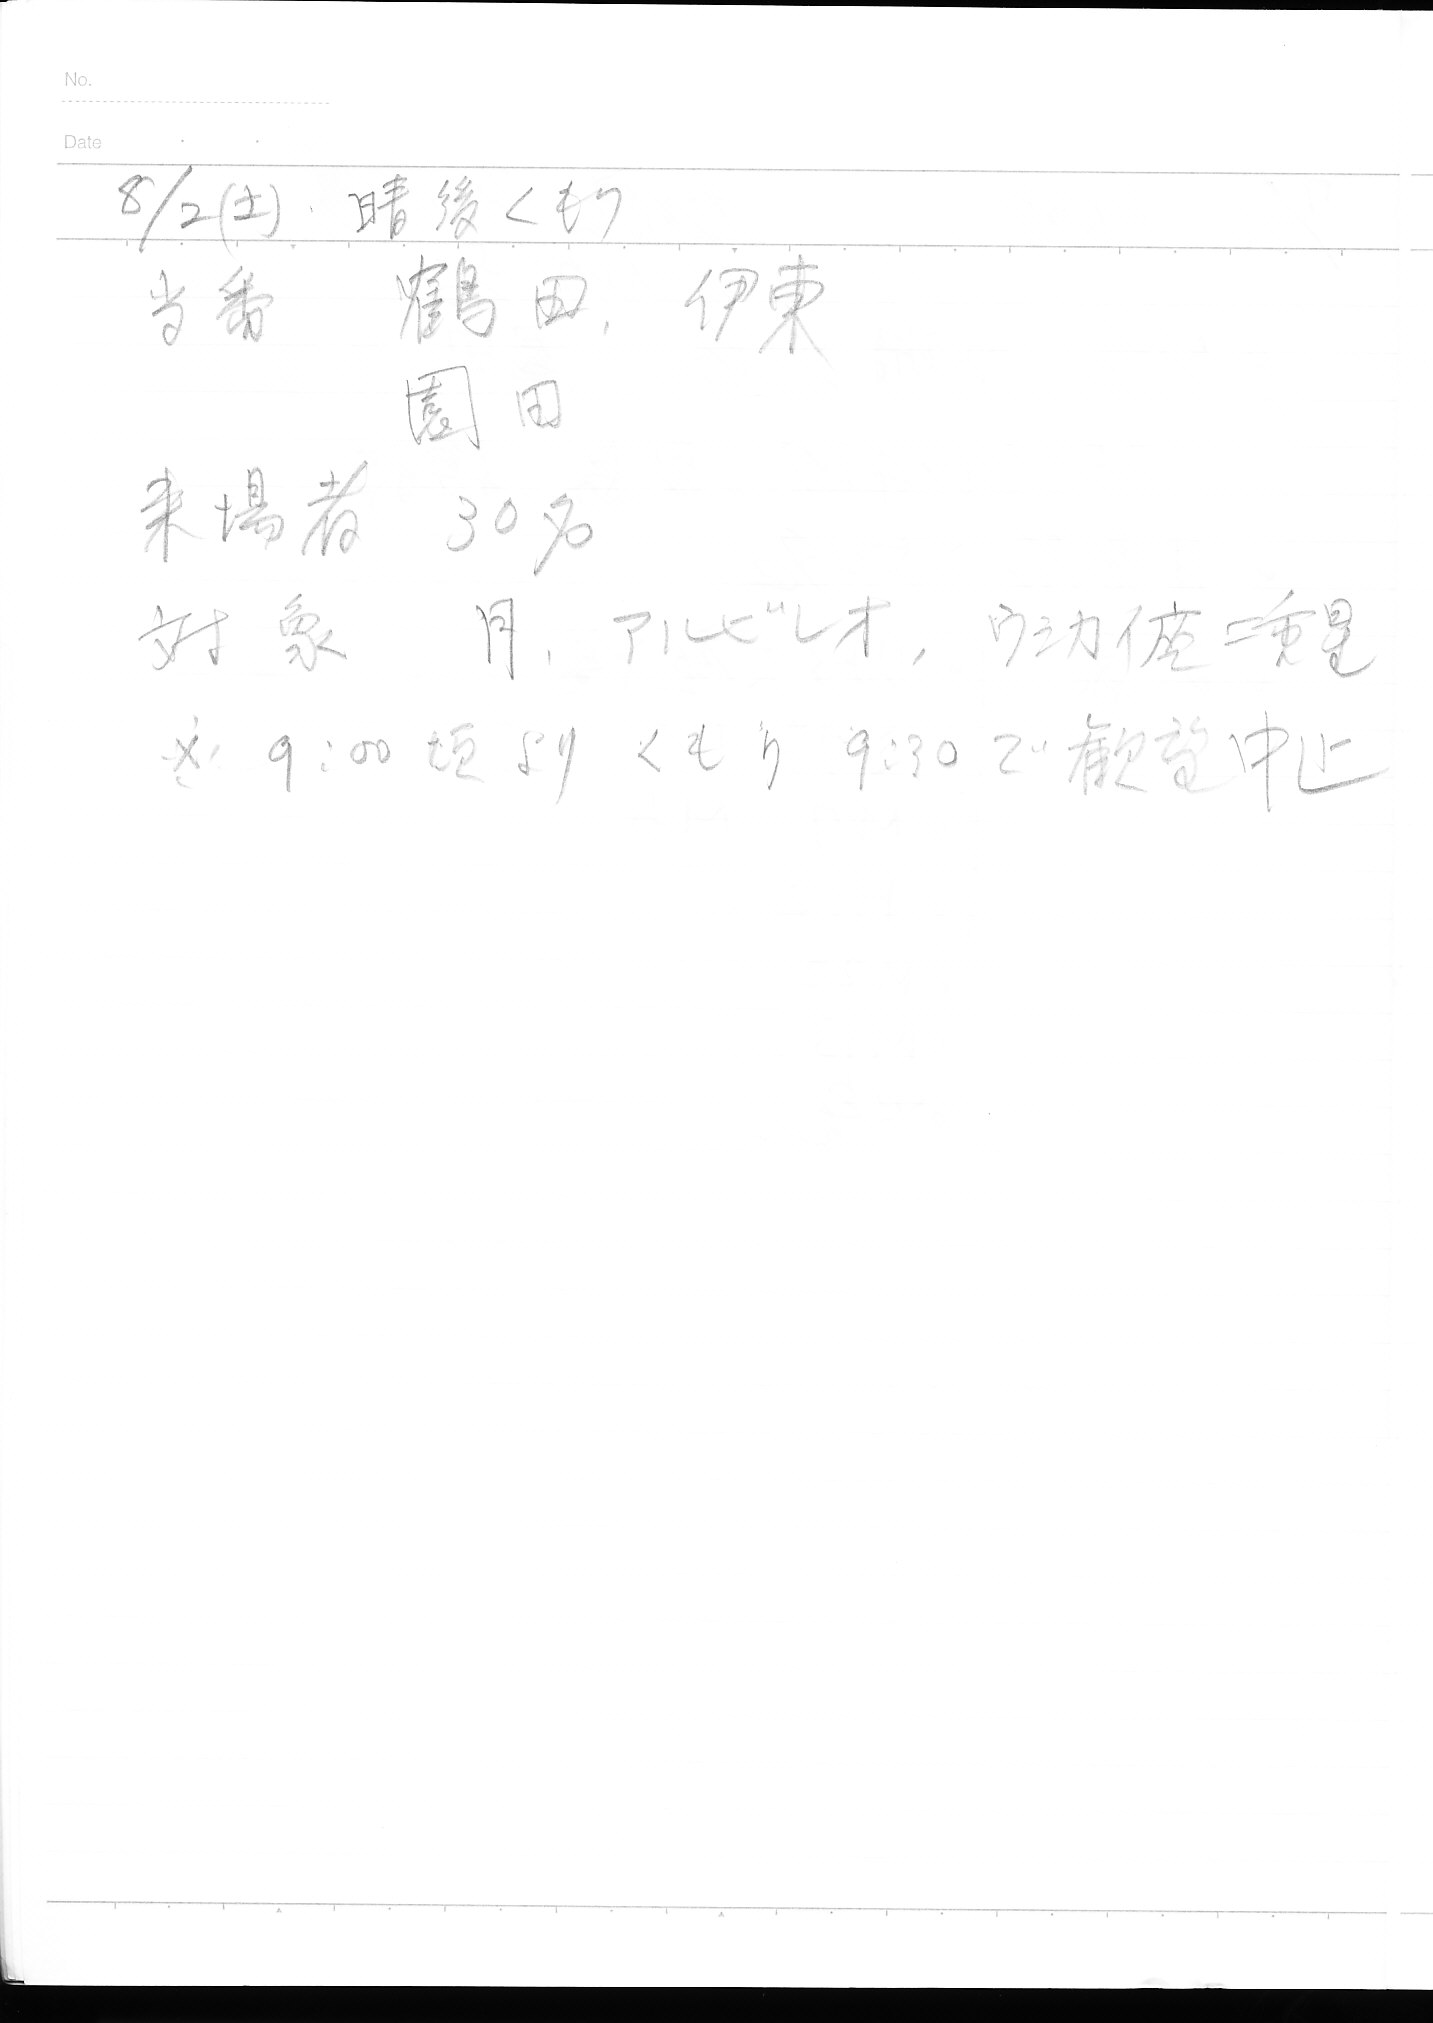 No.
Date
8/2(土). 晴後くもり
当番 鶴田, 伊東
園田
来場者 30名
対象 月, アルビレオ, 座二重星
※ 9:00頃より くもり 9:30で観望中止